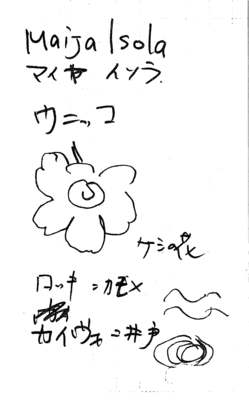 Maija Isola
マイヤ イソラ
ウニッコ
ケシの花
ロッキ=カモメ
カイヴォ=井戸